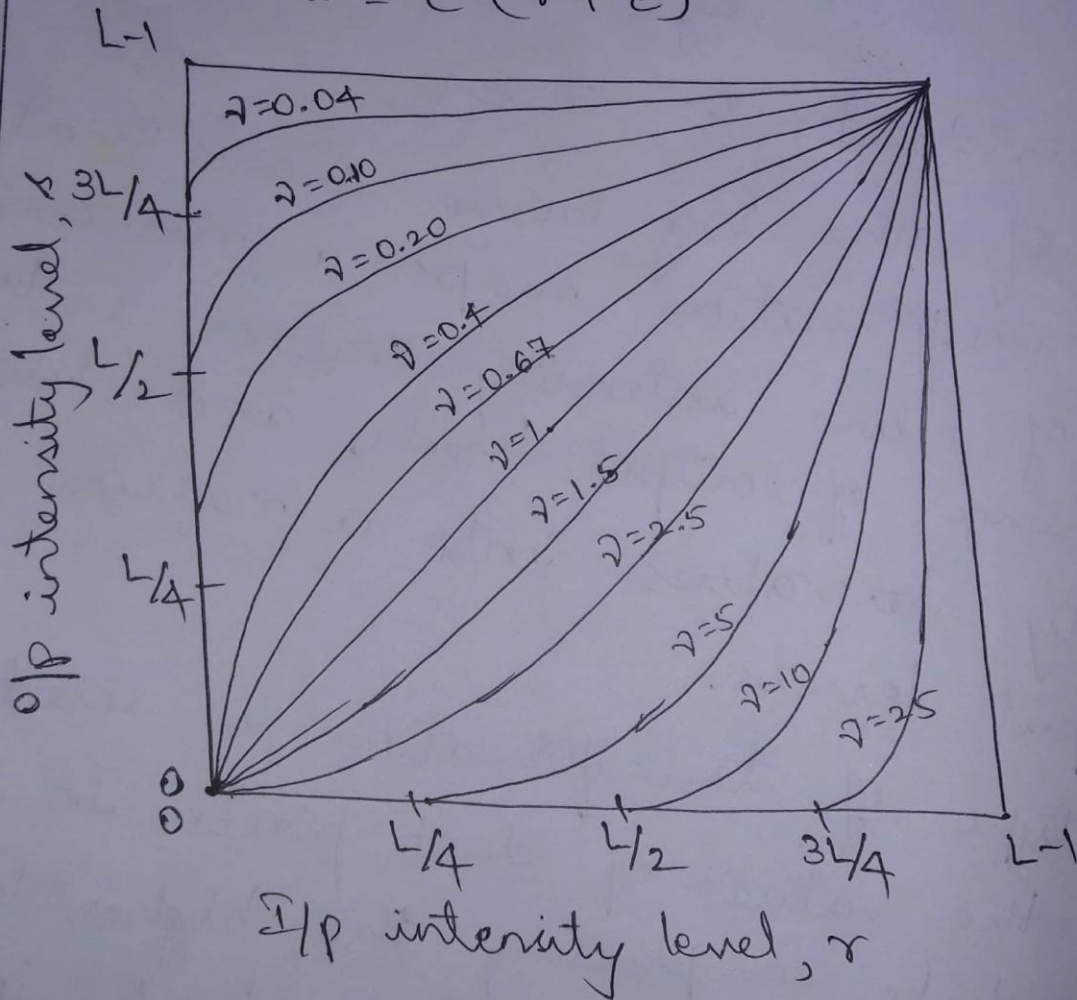 L-1
γ=0.04
3L/4
γ=0.10
γ=0.20
L/2
γ=0.4
γ=0.67
γ=1
γ=1.5
γ=2.5
L/4
γ=5
γ=10
γ=25
O/p intensity level, s
0
0
L/4
L/2
3L/4
L-1
I/p intensity level, r